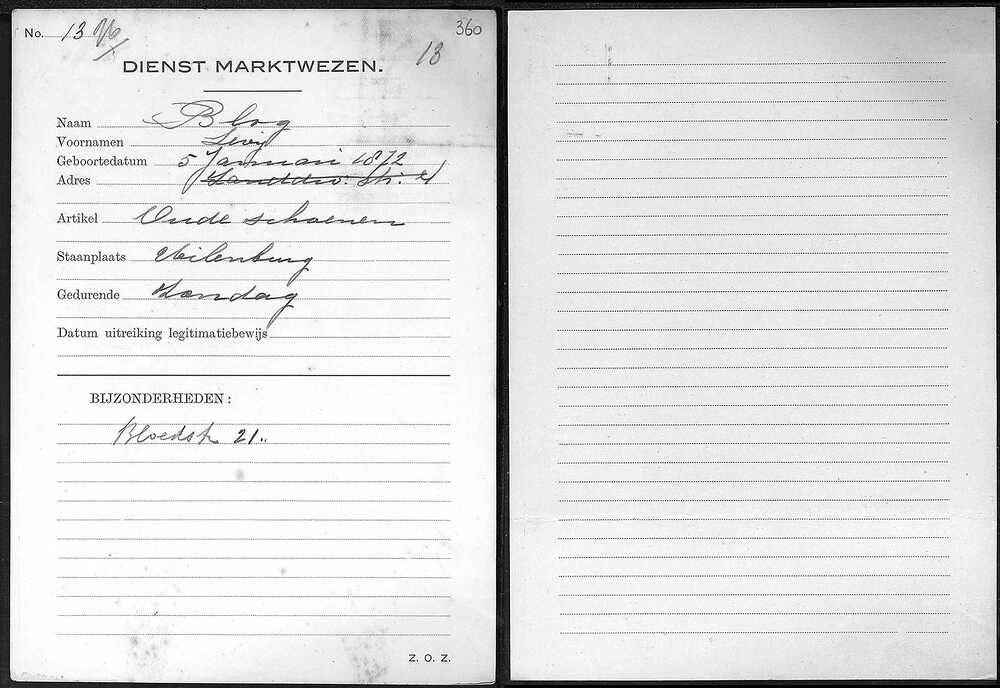 No. 13
360
13
DIENST MARKTWEZEN.
Naam Blog
Voornamen Levij
Geboortedatum 5 Januari 1872
Adres
Artikel Oude schoenen
Staanplaats Uilenburg
Gedurende Zondag
Datum uitreiking legitimatiebewijs
BIJZONDERHEDEN:
Bloedstr 21.
Z. O. Z.